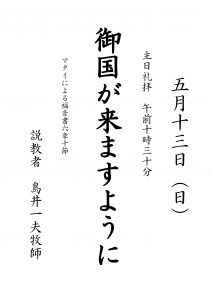 五月十三日（日）
主日礼拝　午前十時三十分
御国が来ますように
マタイによる福音書六章十節
説教者　鳥井一夫牧師